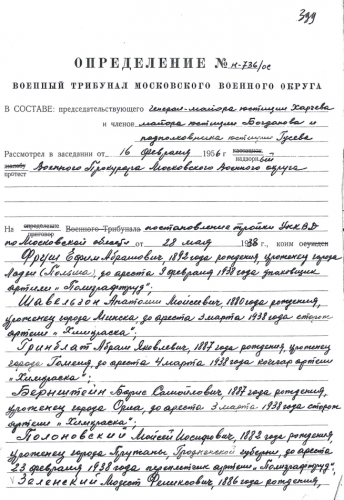 399
ОПРЕДЕЛЕНИЕ № н-736/ос
ВОЕННЫЙ ТРИБУНАЛ МОСКОВСКОГО ВОЕННОГО ОКРУГА
В СОСТАВЕ: председательствующего Генерал-майора юстиции Харчева
и членов майора юстиции Богданова и
подполковника юстиции Гусева
Рассмотрел в заседании от 16 февраля 1956 г. надзорный
протест Военного Прокурора Московского Военного округа
На приговор Военного Трибунала постановление тройки УНКВД
по Московской области от 28 мая 1938, коим осужден
Фруш Ефим Абрамович, 1892 года рождения, уроженец города
Лодзи (Польша), до ареста 9 февраля 1938 года упаковщик
артели "Полиграфтруд";
Шавельзон Анатолий Моисеевич, 1880 года рождения,
уроженец города Минска, до ареста 3 марта 1938 года сторож
артели "Химкраска";
Гринблат Абрам Яковлевич, 1887 года рождения, уроженец
города Гомеля, до ареста 4 марта 1938 года кочегар артели
"Химкраска";
Бернштейн Борис Самойлович, 1887 года рождения,
уроженец города Орла, до ареста 3 марта 1938 года сторож
артели "Химкраска";
Полоновский Мойсей Иосифович, 1882 года рождения,
уроженец города Пружаны, Гродненской губернии, до ареста
23 февраля 1938 года переплетчик артели "Полиграфтруд";
Зеленский Модест Феликсович, 1886 года рождения,